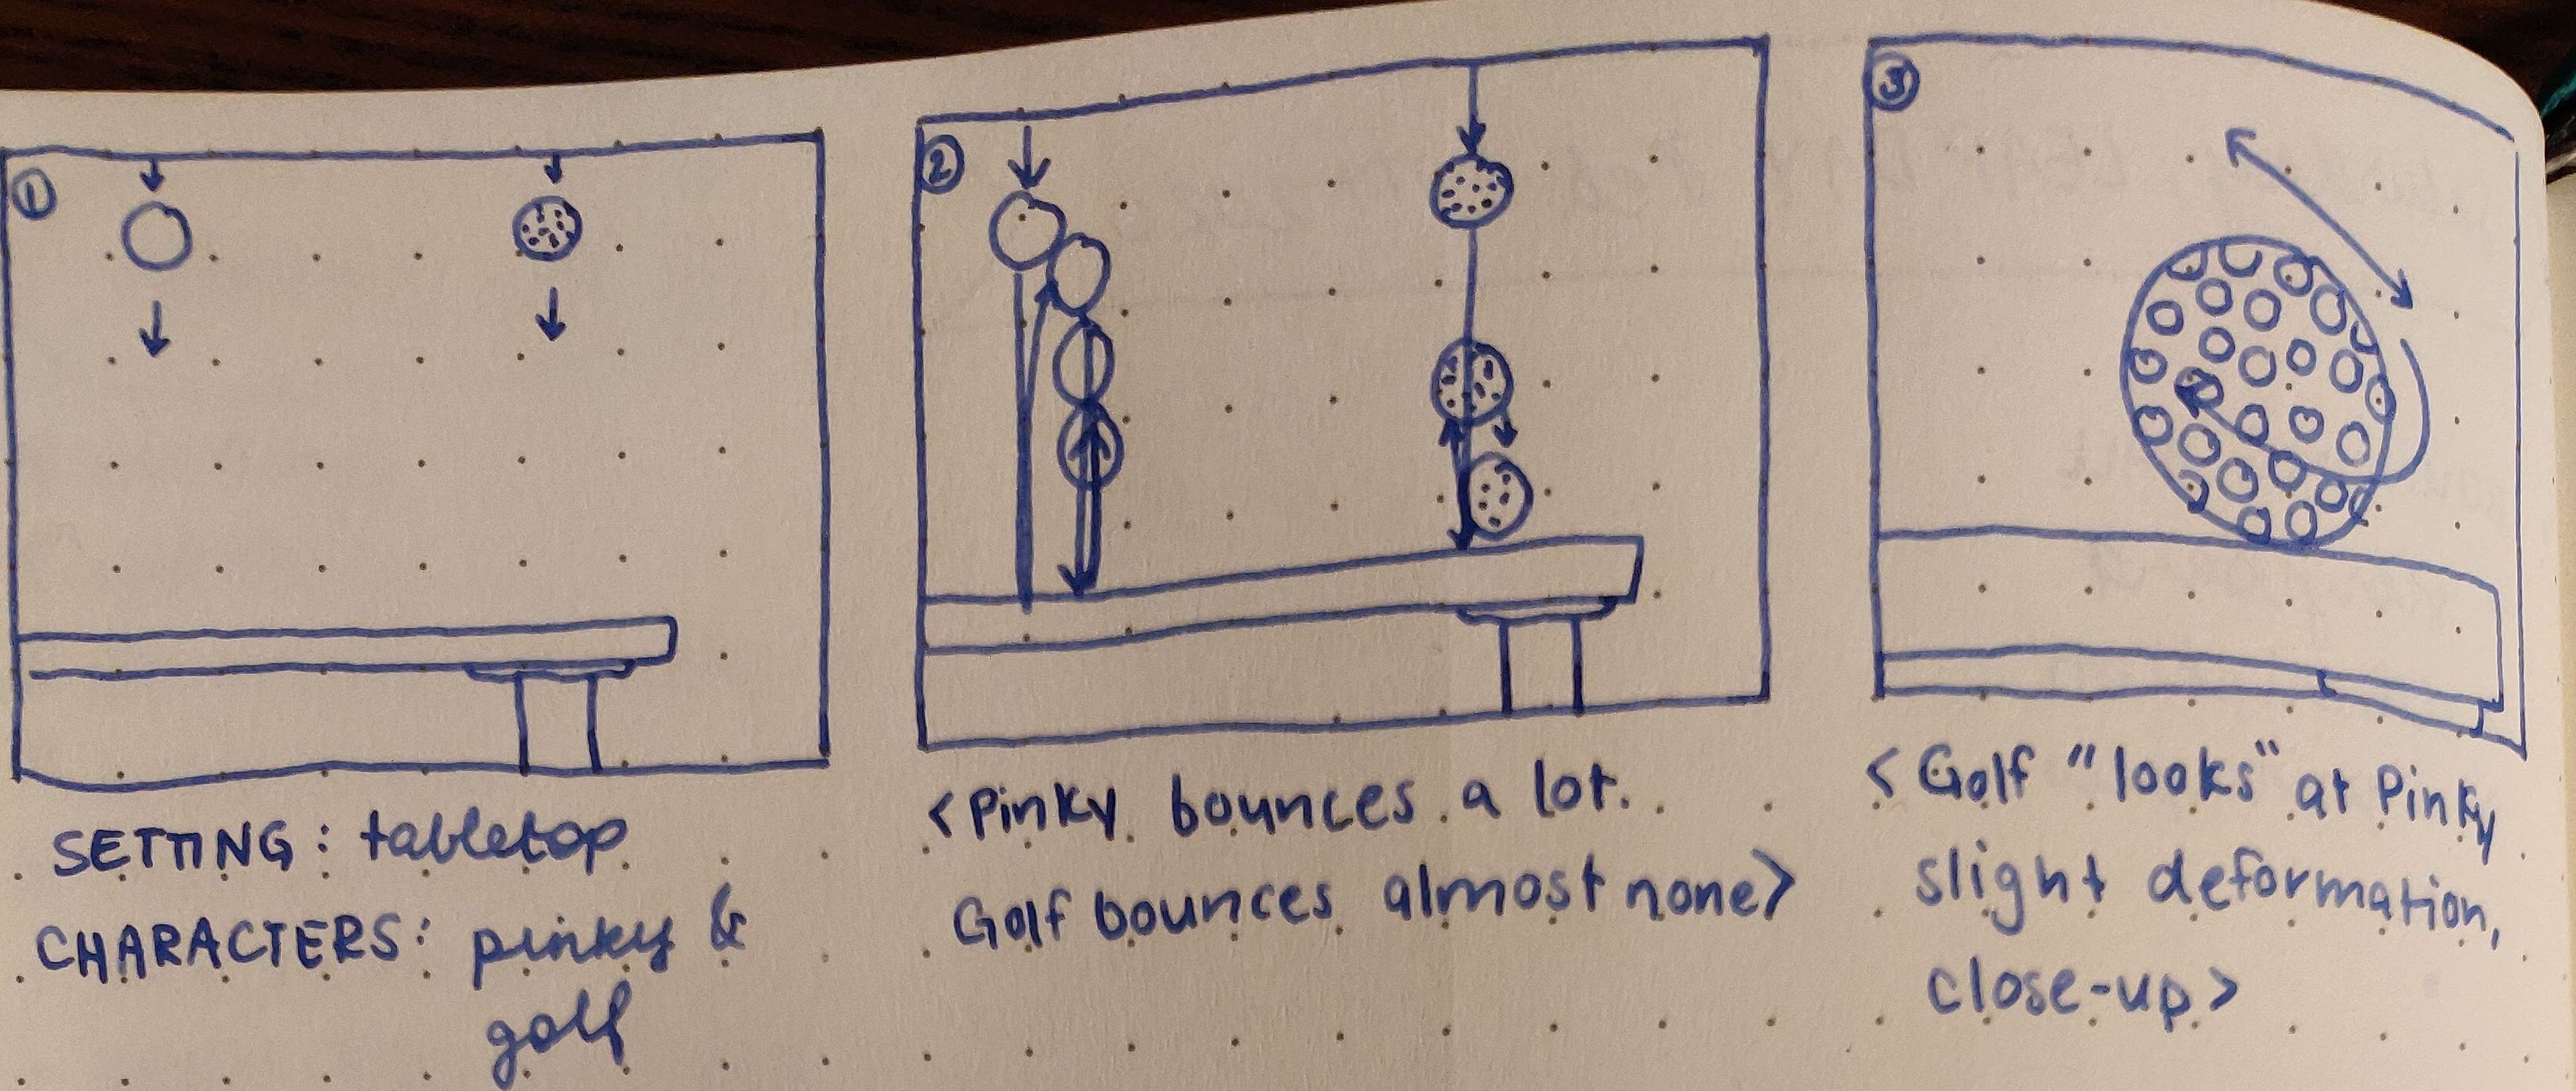 ①
SETTING: tabletop
CHARACTERS: pinky &
golf
②
<Pinky bounces a lot.
Golf bounces almost none>
③
<Golf "looks" at Pinky
slight deformation,
close-up>